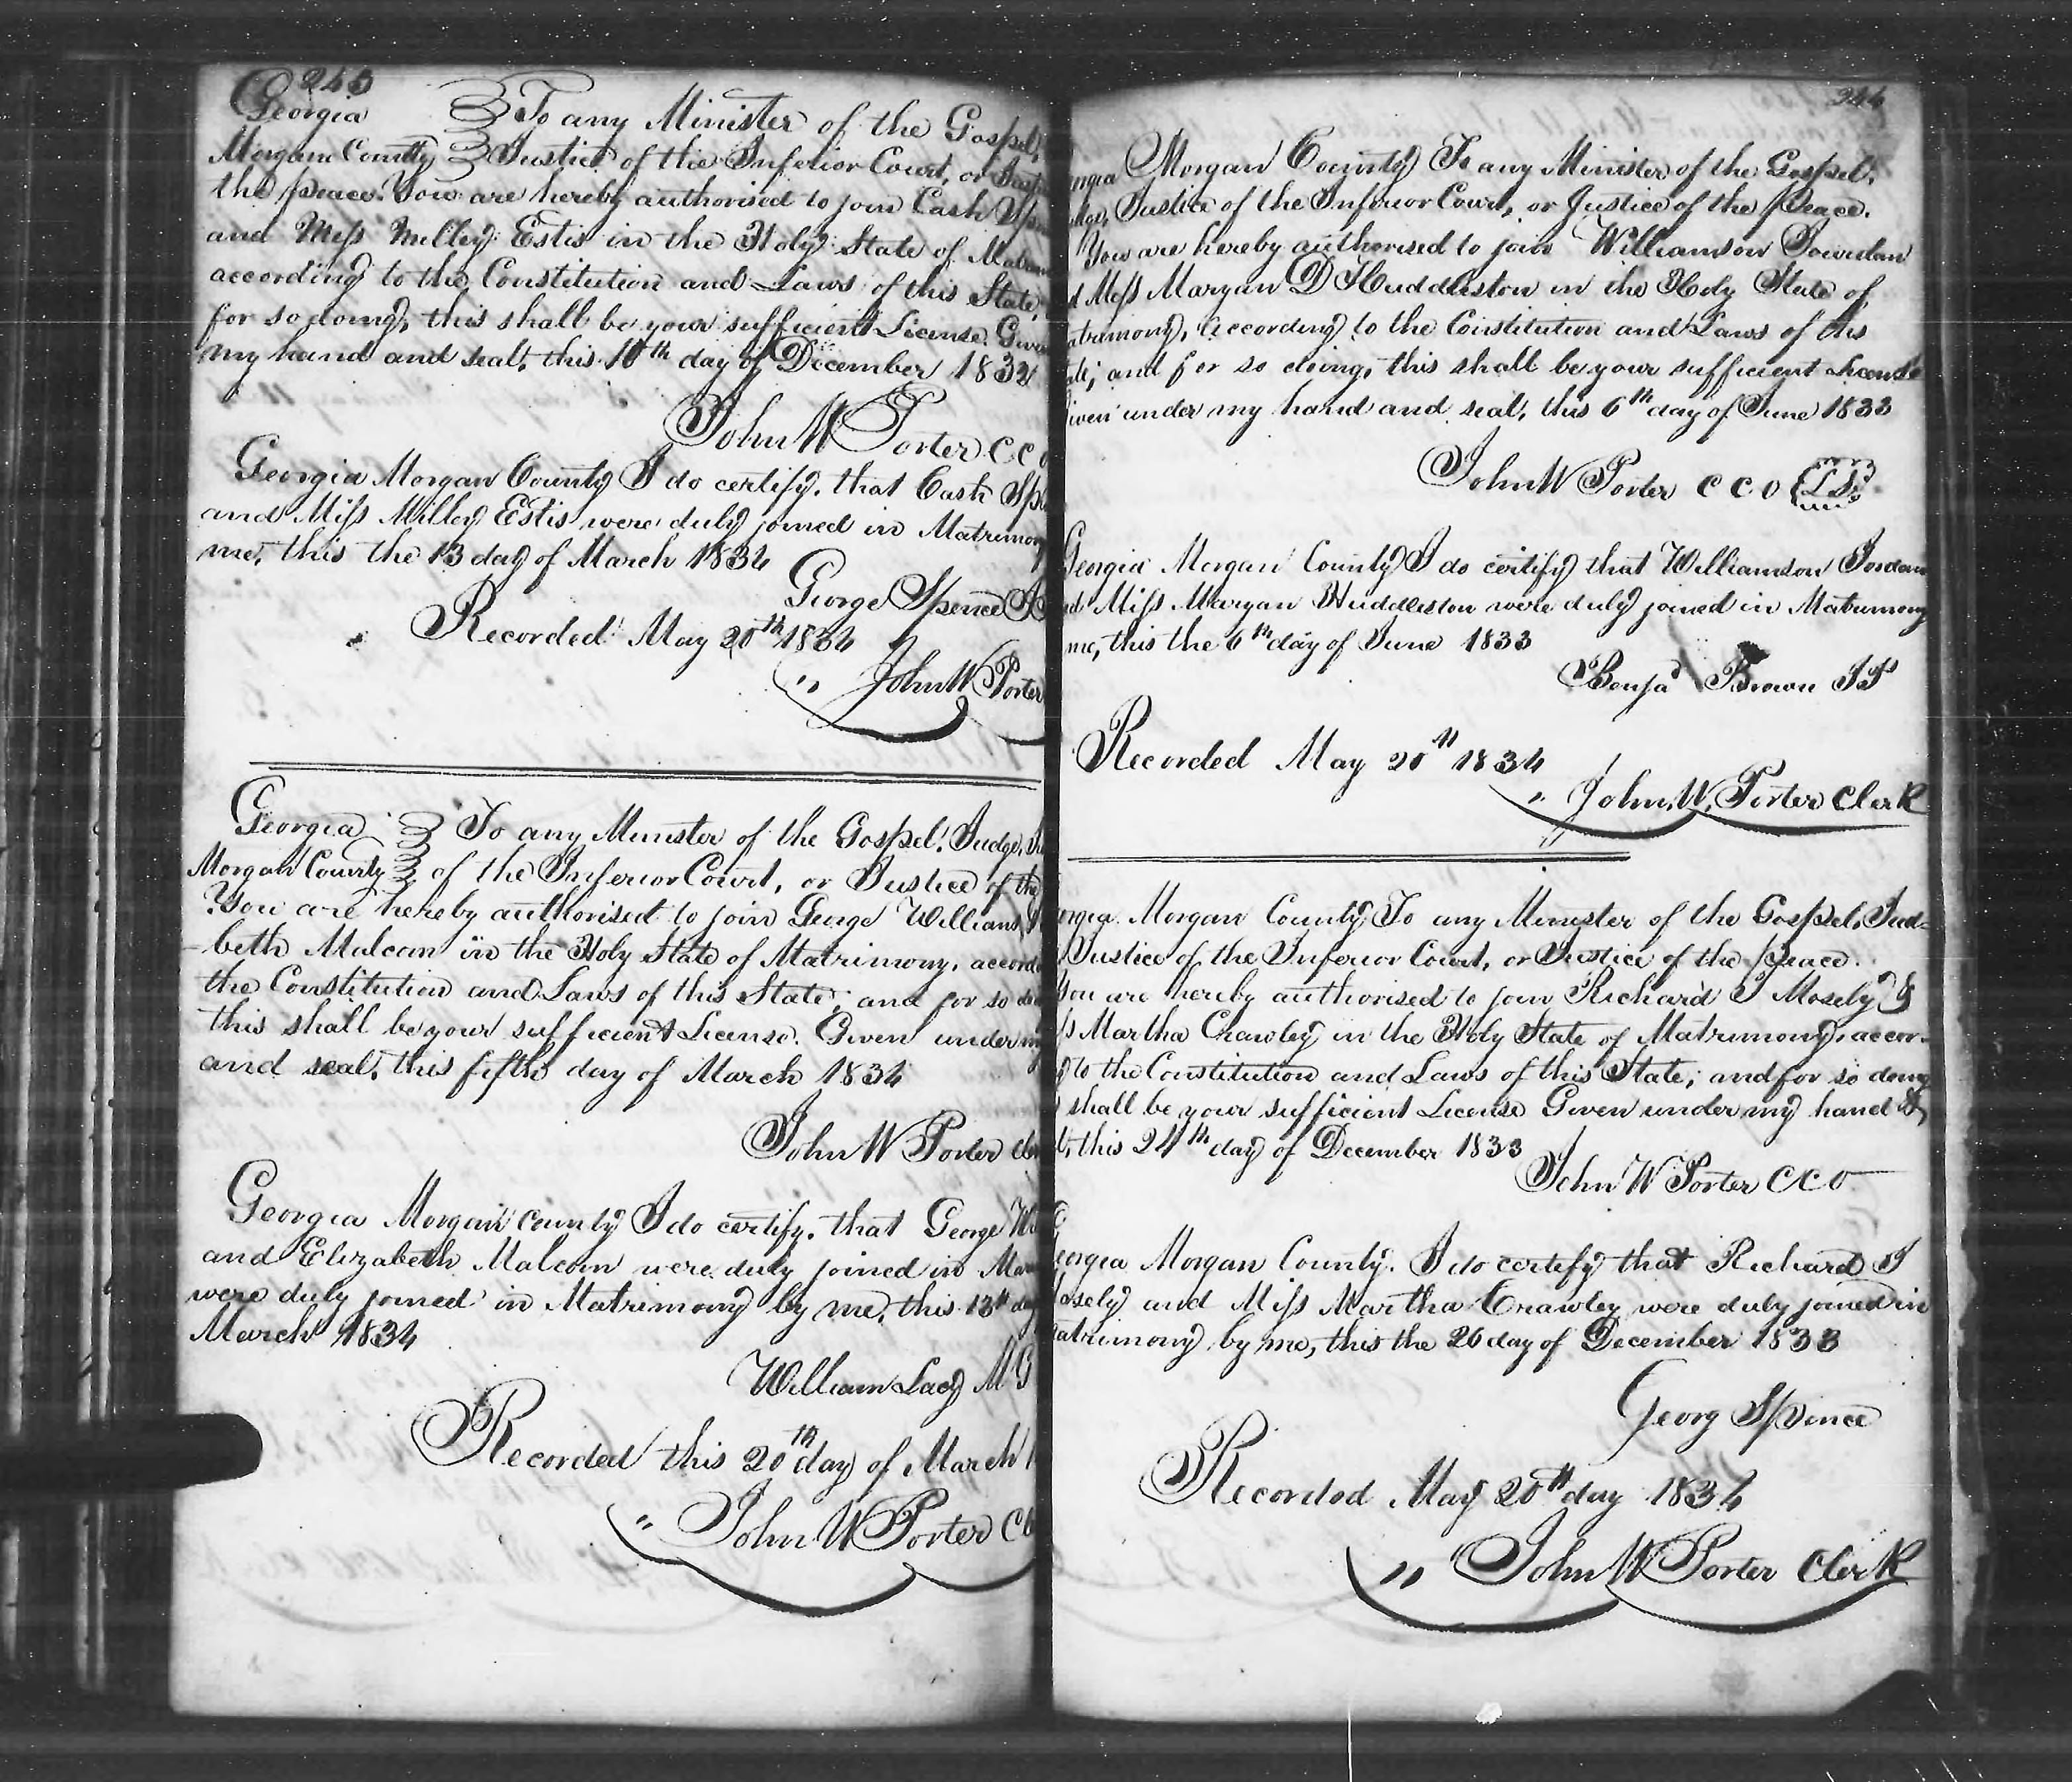 Georgia To any Minister of the Gospel,
Morgan County Justice of the Inferior Court, or
the peace. You are hereby authorised to join Cash
and Miss Milley Estis in the Holy State of
according to the Constitution and Laws of this State,
for so doing, this shall be your sufficient License.
my hand and seal, this 10th day of December 1832
John W Porter C C O
Georgia Morgan County I do certify, that Cash
and Miss Milley Estis were duly joined in
me, this the 13 day of March 1834
George Spence
Recorded May 20th 1834
" John W Porter
Georgia To any Minister of the Gospel, Judge,
Morgan County of the Inferior Court, or Justice of the
You are hereby authorised to join George Williams
beth Malcom in the Holy State of Matrimony,
the Constitution and Laws of this State; and for so
this shall be your sufficient License. Given under
and seal, this fifth day of March 1834
John W Porter
Georgia Morgan County I do certify, that George
and Elizabeth Malcom were duly joined in
were duly joined in Matrimony by me, this 13th
March 1834
William Lacy M G
Recorded this 20th day of March
" John W Porter
Morgan County To any Minister of the Gospel,
Justice of the Inferior Court, or Justice of the Peace.
You are hereby authorised to join Williamson Jourdan
Miss Maryan D Huddleston in the Holy State of
according to the Constitution and Laws of this
and for so doing, this shall be your sufficient License
under my hand and seal, this 6th day of June 1833
John W Porter C C O L S
Georgia Morgan County I do certify that Williamson Jordan
Miss Maryan Huddleston were duly joined in Matrimony
me, this the 6th day of June 1833
Benja Brown JP
Recorded May 20th 1834
" John W. Porter Clerk
Morgan County To any Minister of the Gospel, Jud-
Justice of the Inferior Court, or Justice of the peace.
You are hereby authorised to join Richard J Mosely &
Martha Crawley in the Holy State of Matrimony, accor-
to the Constitution and Laws of this State; and for so doing
shall be your sufficient License Given under my hand &
this 24th day of December 1833
John W Porter C C O
Georgia Morgan County. I do certify that Richard J
and Miss Martha Crawley were duly joined in
by me, this the 26 day of December 1833
Georg Spence
Recorded May 20th day 1834
" John W Porter Clerk